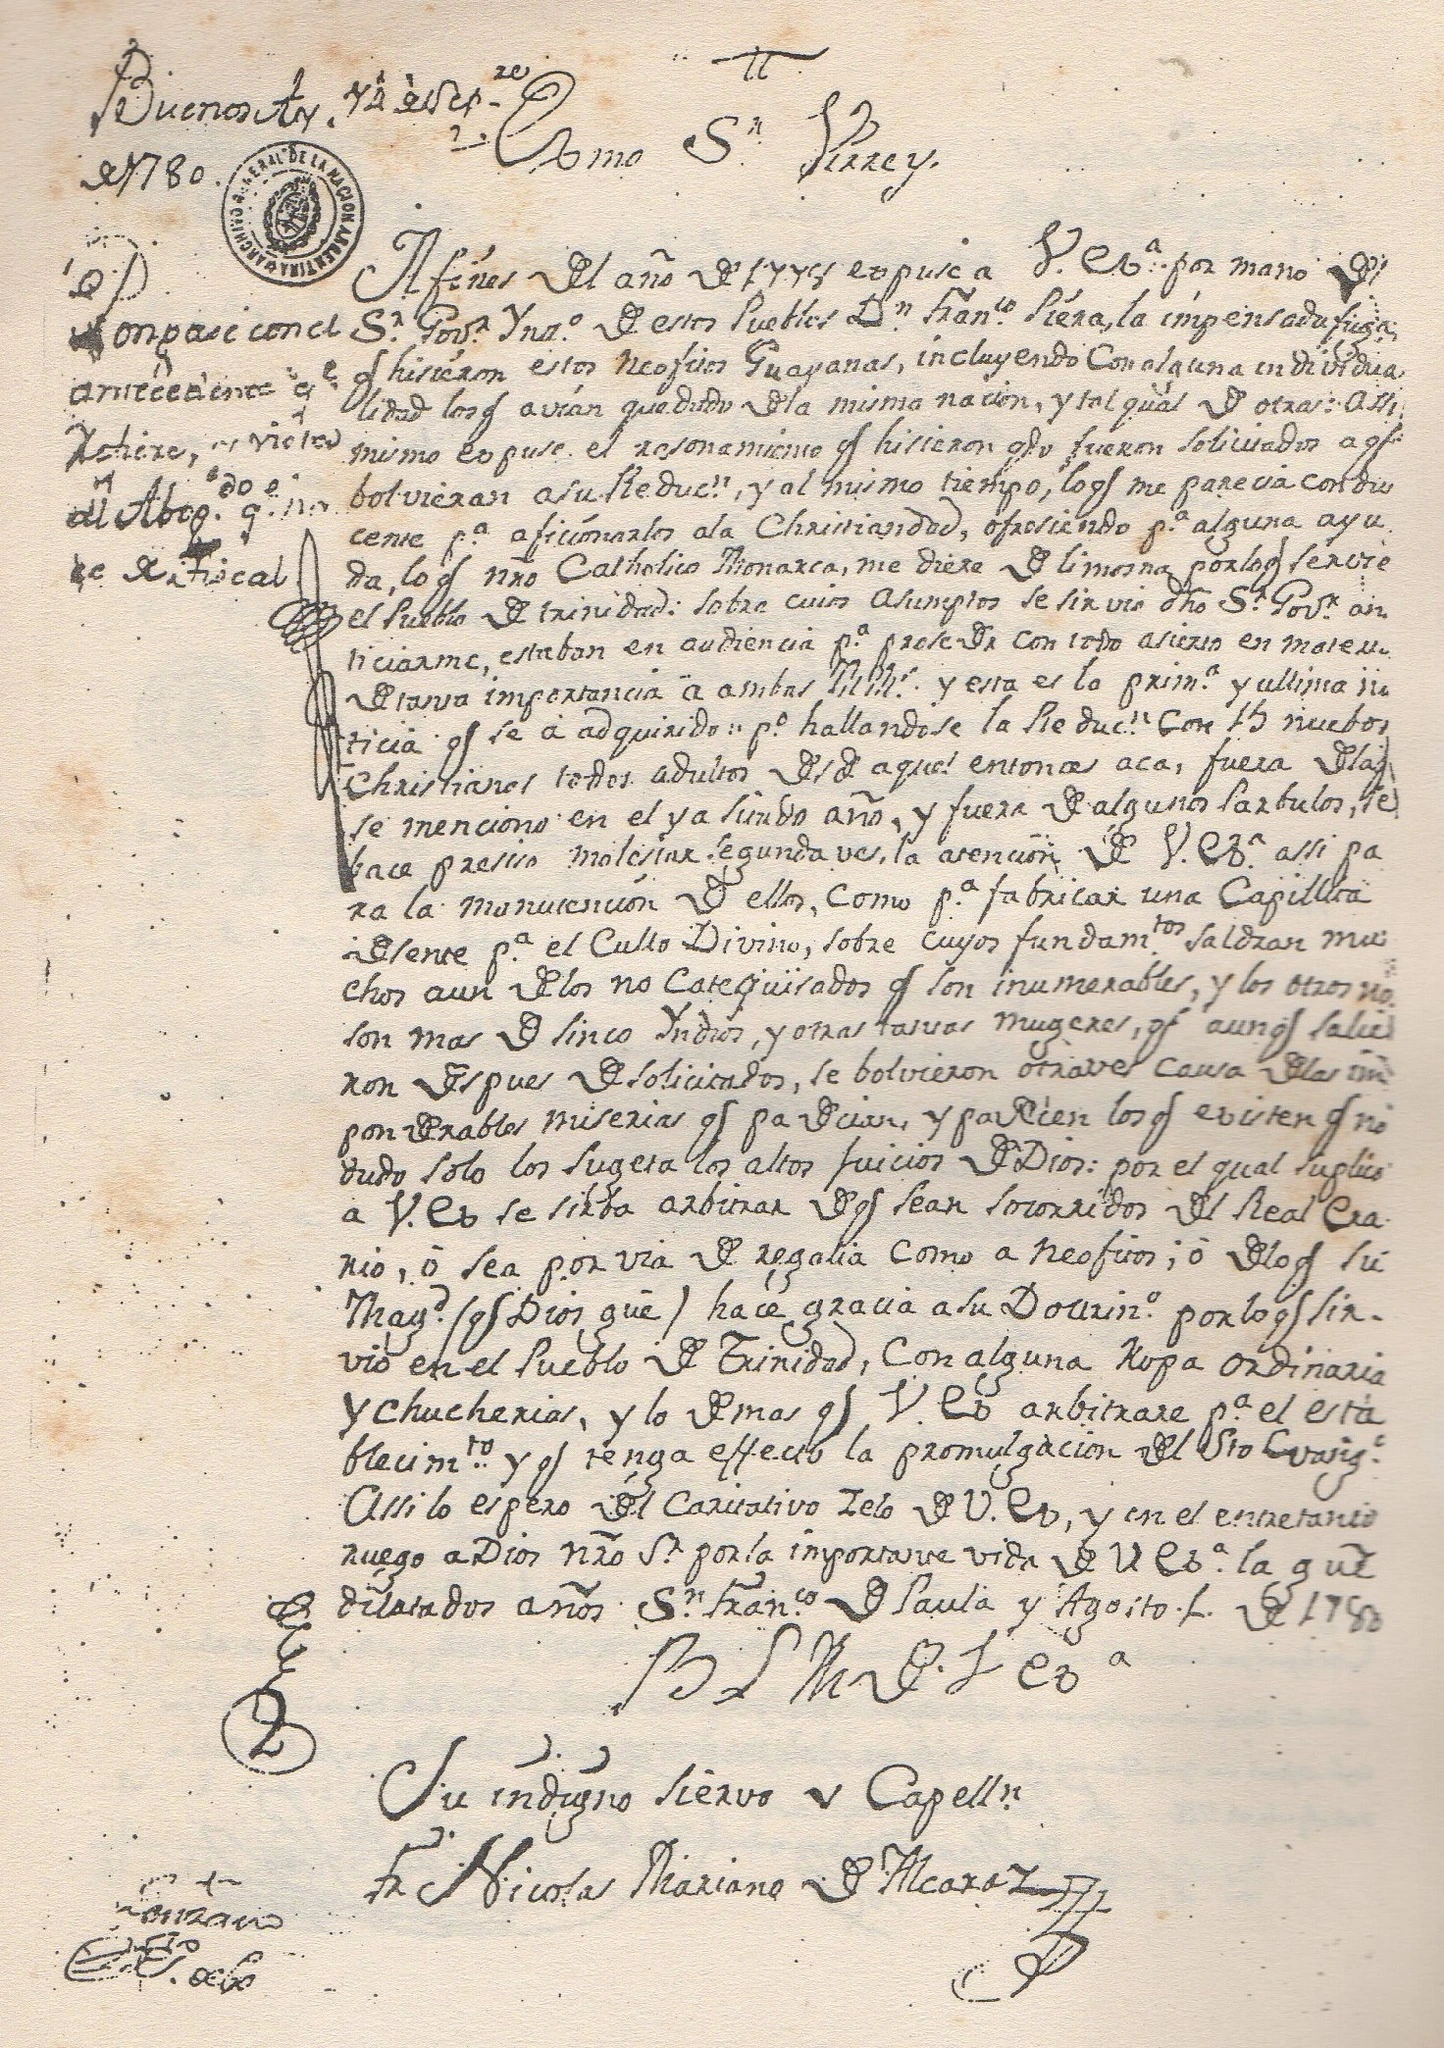 Buenos Ay.s 12 de Sep.re
de 1780.
ARCHIVO GENERAL DE LA NACION ARGENTINA
Exmo S.r Virrey.
con el
antecedente q.e
al Abog.do q.e
Fiscal
A fines del año de 177 expuse a V. Ex.a por mano del
S.r Gov.r Yn.o de estos Pueblos D.n Fran.co Piera, la impensada fuga
q hisieron estos neofitos Guayanas, incluyendo Con alguna individua
lidad los q avian quedado de la misma nacion, y tal qual de otras: assi
mismo expuse el rasonamiento q hisieron q.do fueron solicitados a q
bolvieran a su Reduc.n, y al mismo tiempo, lo q me parecia condu
cente p.a aficionarlos a la Christiandad, ofresiendo p.a alguna ayu
da, lo q nro Catholico Monarca, me diere de limosna por lo q servi
el Pueblo de trinidad: sobre cuios asumptos se sirvio dho S.r Gov.r an
ticiarme, estaban en audiencia p.a proseder con todo asierto en materia
de tanta importancia a ambas MM.s y esta es la prim.a y ultima no
ticia q se a adquirido: p.o hallandose la Reduc.n Con 15 nuebos
Christianos todos adultos desde aquel entonces aca, fuera de los q
se menciono en el ya sitado año, y fuera de algunos Parbulos, se
hace presiso molestar segunda ves, la atencion de V. Ex.a assi pa
ra la manutencion de ellos, como p.a fabricar una Capillita
desente p.a el Culto Divino, sobre cuyos fundam.tos saldran mu
chos aun de los no Categüisados q son inumerables, y los otros no
son mas de sinco Yndios, y otras tantas mugeres, q aunq salie
ron despues de solicitados, se bolvieron otra ves causa de las im
ponderables miserias q padecian, y padecen los q existen q no
dudo solo los sugeta los altos juicios de Dios: por el qual suplico
a V. Ex se sirba arbitrar de q sean socorridos del Real Era
rio, ó sea por via de regalia como a neofitos; ó de lo q su
Mag.d (q Dios güe) hace gracia a su Doctrin.o por lo q sir-
vio en el Pueblo de Trinidad, Con alguna Ropa ordinaria
y chucherias, y lo demas q V. Ex arbitrare p.a el esta
blecim.to y q tenga effecto la promulgacion del Sto Evang.o
Assi lo espero del Caritativo zelo de V. Ex, y en el entretanto
ruego a Dios nro S.r por la importante vida de V Ex.a la gue
dilatados años. S.n Fran.co de Paula y Agosto 1. de 1780
B L M de V Ex.a
2
Su indigno siervo y Capell.n
Fr Nicolas Mariano de Alcaraz